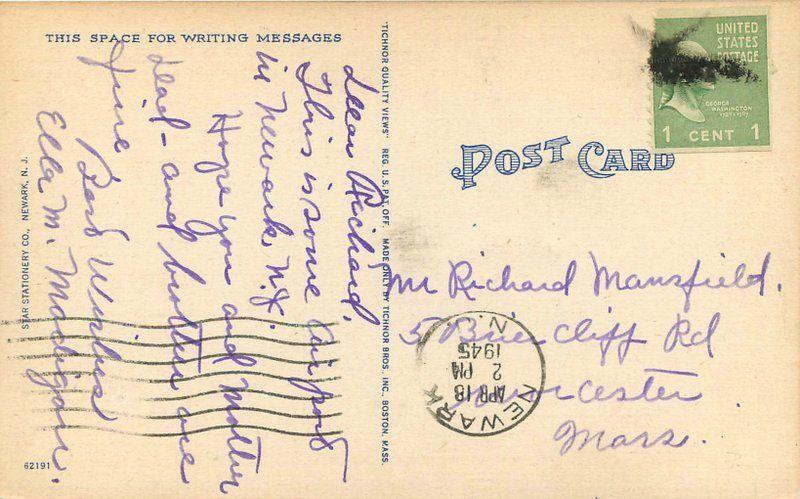 THIS SPACE FOR WRITING MESSAGES
Dear Richard,
This is some airport
in Newark N.J.
Hope you and Mother
dead - and brother are
fine
Best Wishes
Ella M. Madigan.
STAR STATIONERY CO., NEWARK, N. J.
62191
"TICHNOR QUALITY VIEWS" REG. U. S. PAT. OFF. MADE ONLY BY TICHNOR BROS. INC., BOSTON, MASS.
POST CARD
UNITED
STATES
POSTAGE
GEORGE
WASHINGTON
1 CENT 1
Mr Richard Mansfield.
5 Briercliff Rd
Worcester
Mass.
NEWARK
APR 18
2 PM
1945
N.